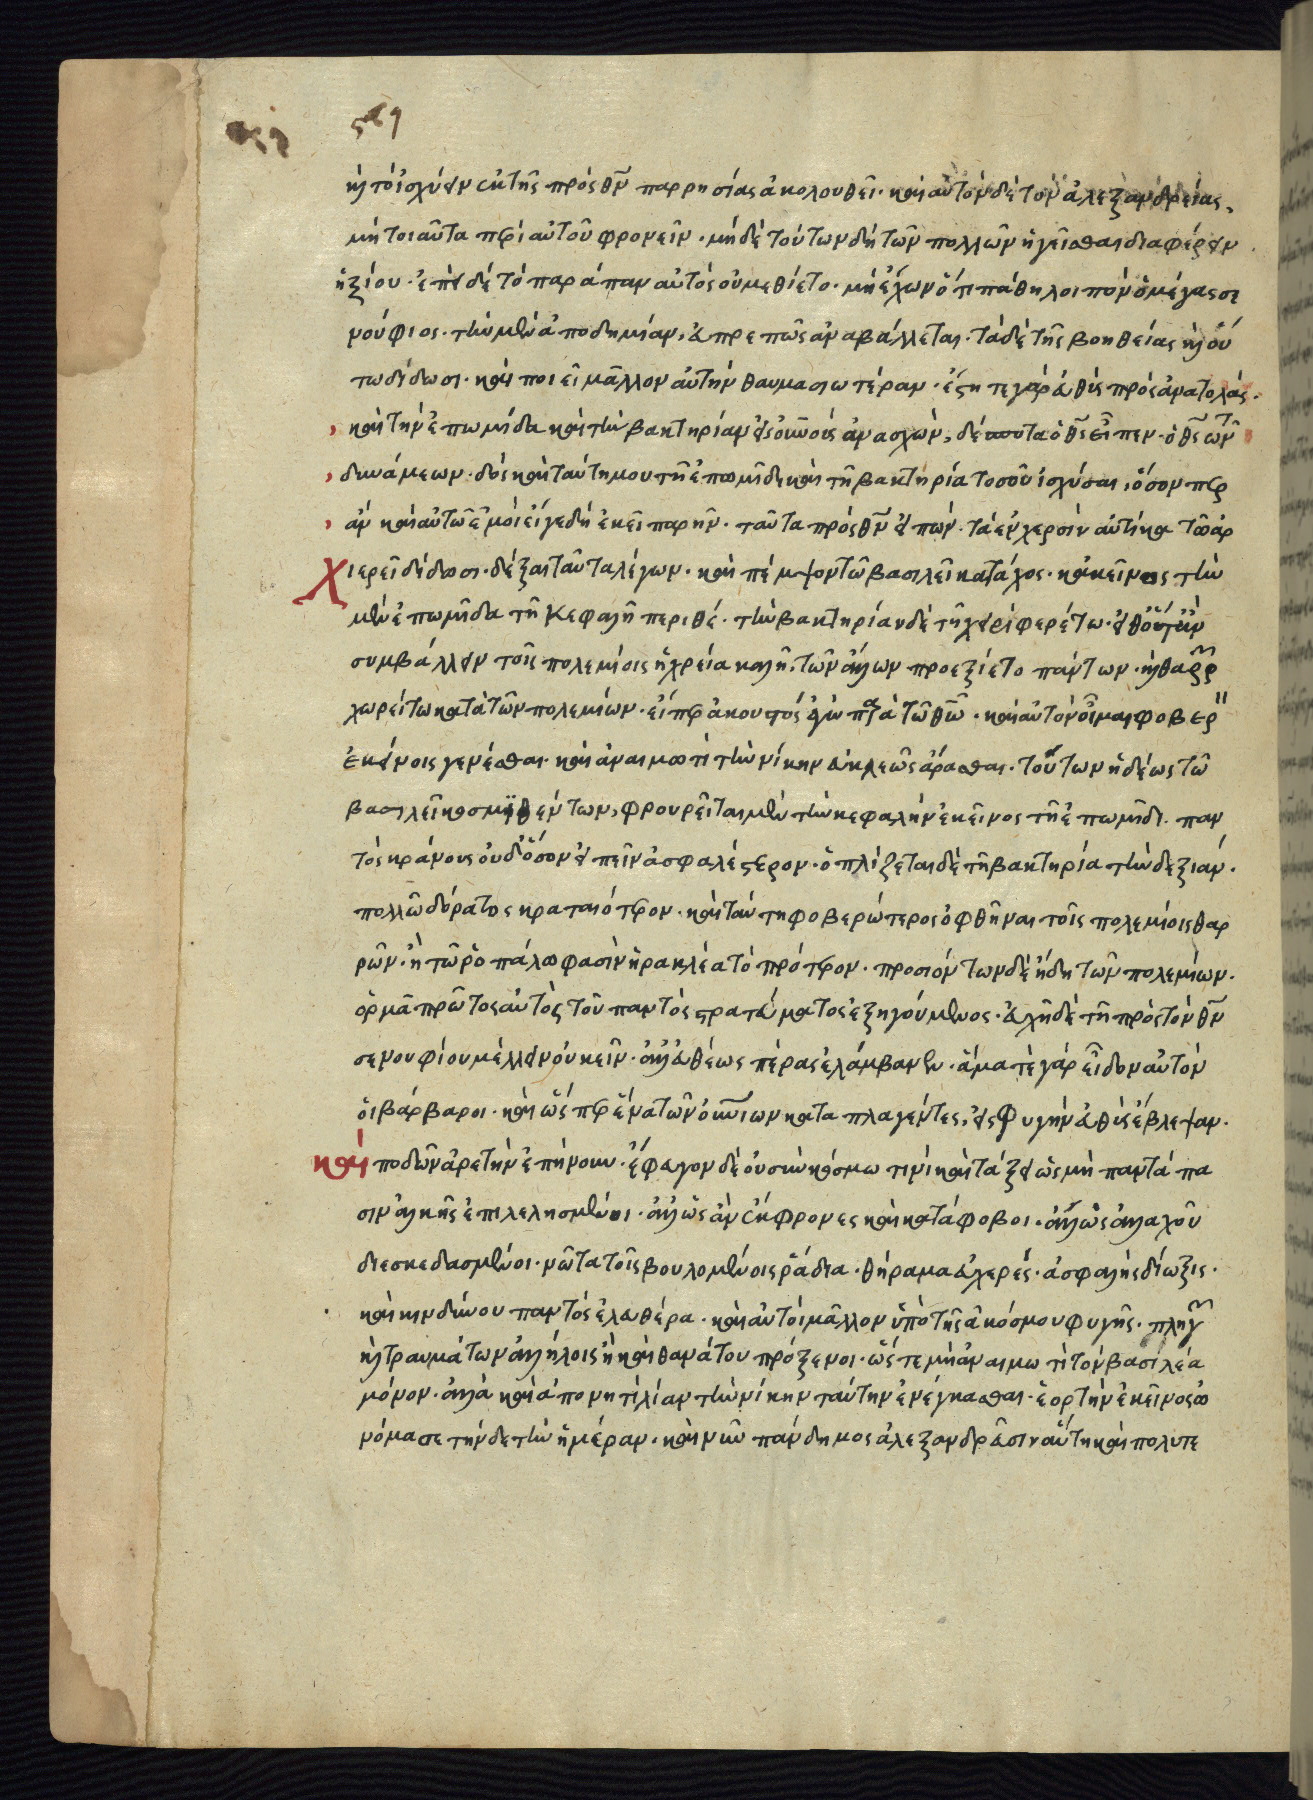 καὶ τὸ ἰσχύειν ἐκ τῆς πρὸς θν̅ παρρησίας ἀκολουθεῖ· καὶ αὐτὸν δὲ τὸν ἀλεξανδρείας,
μὴ τοιαῦτα περὶ αὐτοῦ φρονεῖν· μὴ δὲ τούτων δὴ τῶν πολλῶν ἡγεῖσθαι διαφέρειν
ἠξίου· ἐπεὶ δὲ τὸ παράπαν αὐτὸς οὐ μεθίετο· μὴ ἔχων ὅ τι πάθῃ λοιπὸν ὁ μέγας σε
νούφιος· τὴν μὲν ἀποδημίαν, εὐπρεπῶς ἀναβάλλεται· τὰ δὲ τῆς βοηθείας καὶ οὕ
τω δίδωσι· καὶ ποιεῖ μᾶλλον αὐτὴν θαυμασιωτέραν· ἔστη τε γὰρ εὐθὺς πρὸς ἀνατολάς·
καὶ τὴν ἐπωμίδα καὶ τὴν βακτηρίαν εἰς οὐνοὺς ἀνασχὼν, δέσποτα ὁ θς̅ εἶπεν· ὁ θς̅ τῶν
δυνάμεων· δὸς καὶ ταύτῃ μου τῇ ἐπωμίδι καὶ τῇ βακτηρία τοσοῦ ἰσχύσαι, ὅσον περ
ἂν καὶ αὐτῶ ἐμοὶ εἴγε δὴ ἐκεῖ παρῆν· ταῦτα πρὸς θν̅ εἰπών· τὰ ἐν χερσὶν αὐτίκα τῶ ἀρ
χιερεῖ δίδωσι· δέξαι ταῦτα λέγων· καὶ πέμψον τῶ βασιλεῖ κατὰ τάχος· κἀκεῖνος τὴν
μὲν ἐπωμίδα τῇ κεφαλῇ περιθέ· τὴν βακτηρίαν δὲ τῇ χειρὶ φερέτω·
συμβάλλειν τοῖς πολεμίοις ἡ χρεία καλῇ, τῶν ἄλλων προεξίετο πάντων· καὶ θαρρ
χωρείτω κατὰ τῶν πολεμίων· εἴπερ ἀκουστὸς ἐγὼ παρὰ τῶ θω̅· καὶ αὐτὸν οἶμαι φοβερ
ἐκείνοις γενέσθαι· καὶ ἀναιμωτὶ τὴν νίκην εὐκλεῶς ἄρασθαι· τούτων ἡδέως τῶ
βασιλεῖ κομισθέντων, φρουρεῖται μὲν τὴν κεφαλὴν ἐκεῖνος τῇ ἐπωμίδι· παν
τὸς κράνους οὐδ' ὅσον εἰπεῖν ἀσφαλέστερον· ὁπλίζεται δὲ τῇ βακτηρία τὴν δεξιάν·
πολλῶ δόρατος κραταιότερον· καὶ ταύτῃ φοβερώτερος ὀφθῆναι τοῖς πολεμίοις θαρ
ρῶν· ἢ τῶ ῥοπάλω φασὶν ἡρακλέα τὸ πρότερον· προσιόντων δὲ ἤδη τῶν πολεμίων·
ὁρμᾶ πρῶτος αὐτὸς τοῦ παντὸς στρατεύματος ἐξηγούμενος· εὐχὴ δὲ τῇ πρὸς τὸν θν̅
σενουφίου μέλλειν οὐκ ἦν· ἀλλ' εὐθέως πέρας ἐλάμβανεν· ἅμα τε γὰρ εἶδον αὐτὸν
οἱ βάρβαροι· καὶ ὥσπερ ἕνα τῶν οὐνίων καταπλαγέντες, εἰς φυγὴν εὐθὺς ἔβλεψαν·
καὶ ποδῶν ἀρετὴν ἐπήνουν· ἔφυγον δὲ οὐ σὺν κόσμω τινὶ καὶ τάξει ὡς μὴ παντάπα
σιν ἀλκῆς ἐπιλελησμένοι· ἀλλ' ὡς ἂν ἔκφρονες καὶ κατάφοβοι· ἄλλως ἀλλαχοῦ
διεσκεδασμένοι· νῶτα τοῖς βουλομένοις ῥάδια· θήραμα εὐχερές· ἀσφαλὴς δίωξις·
καὶ κινδύνου παντὸς ἐλευθέρα· καὶ αὐτοὶ μᾶλλον ὑπὸ τῆς ἀκόσμου φυγῆς· πληγ
καὶ τραυμάτων ἀλλήλοις ἢ καὶ θανάτου πρόξενοι· ὥστε μὴ ἀναιμωτὶ τὸν βασιλέα
μόνον· ἀλλὰ καὶ ἀπονητὶ λίαν τὴν νίκην ταύτην ἐνέγκασθαι· ἑορτὴν ἐκεῖνος ὠ
νόμασε τήνδε τὴν ἡμέραν· καὶ νῦν πάνδημος ἀλεξανδρεῦσιν αὕτη καὶ πολυτε